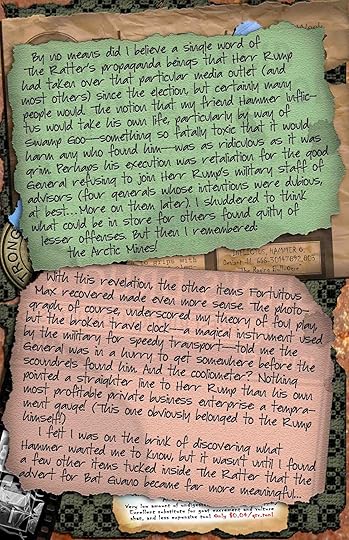 By no means did I believe a single word of
The Ratter's propaganda beings that Herr Rump
had taken over that particular media outlet (and
most others) since the election, but certainly many
people would. The notion that my friend Hammer inflic-
tus would take his own life, particularly by way of
Swamp Goo—something so fatally toxic that it would
harm any who found him—was as ridiculous as it was
grim. Perhaps his execution was retaliation for the good
General refusing to join Herr Rump's military staff of
advisors (four generals whose intentions were dubious,
at best....More on them later). I shuddered to think
what could be in store for others found guilty of
lesser offenses. But then I remembered:
the Arctic Mines!
With this revelation, the other items Fortuitous
Max recovered made even more sense. The photo-
graph, of course, underscored my theory of foul play,
but the broken travel clock—a magical instrument used
by the military for speedy transport—told me the
General was in a hurry to get somewhere before the
scoundrels found him. And the cooliometer? Nothing
pointed a straighter line to Herr Rump than his own
most profitable private business enterprise a tempra-
ment gauge! (This one obviously belonged to the Rump
himself!)
I felt I was on the brink of discovering what
Hammer wanted me to know, but it wasn't until I found
a few other items tucked inside The Ratter that the
advert for Bat Guano became far more meaningful...
Excellent substitute for goat excrement and vulture
shat, and less expensive too! Only $0.04/qtr.ton!